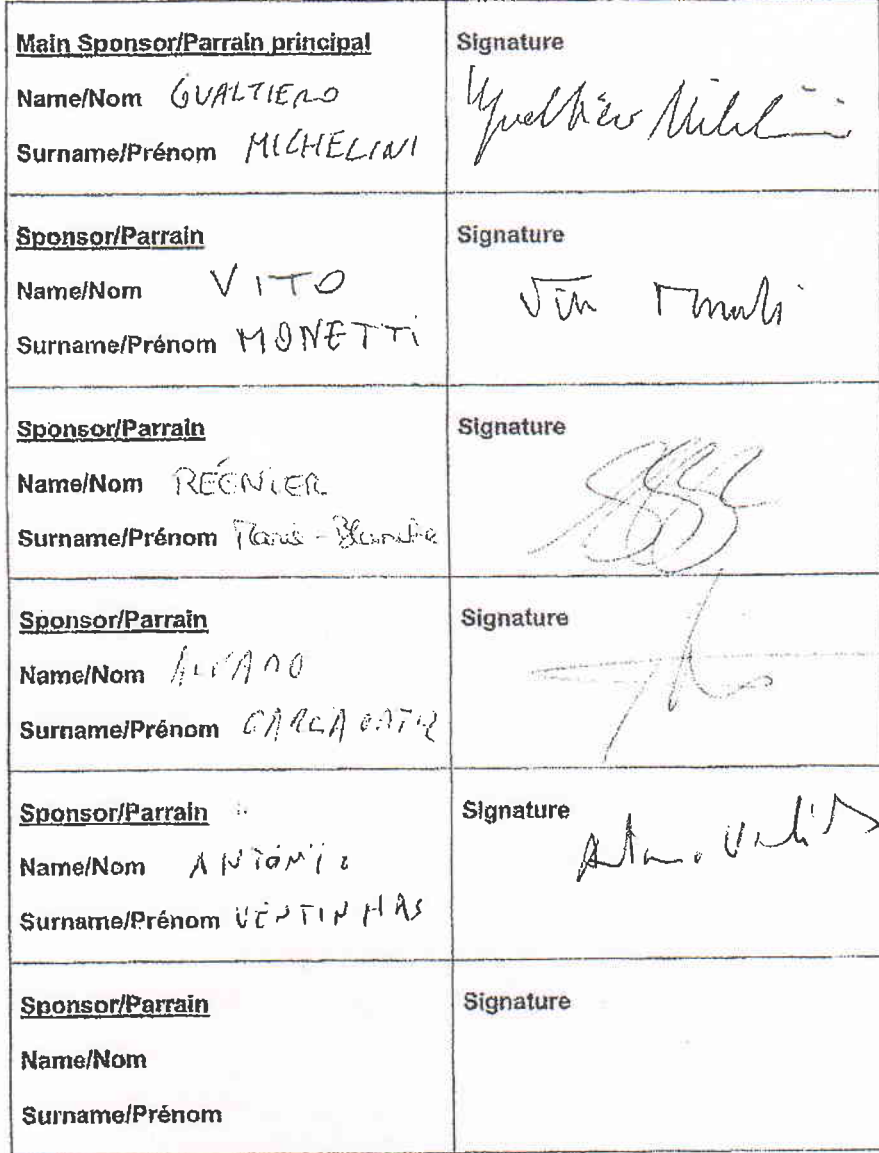 Main Sponsor/Parrain principal
Name/Nom GUALTIERO
Surname/Prénom MICHELINI
Signature
Sponsor/Parrain
Name/Nom VITO
Surname/Prénom MONETTI
Signature
Sponsor/Parrain
Name/Nom RÉGNIER
Surname/Prénom Marie-Blanche
Signature
Sponsor/Parrain
Name/Nom
Surname/Prénom GARCIA
Signature
Sponsor/Parrain
Name/Nom ANTÓNIO
Surname/Prénom VENTINHAS
Signature
Sponsor/Parrain
Name/Nom
Surname/Prénom
Signature